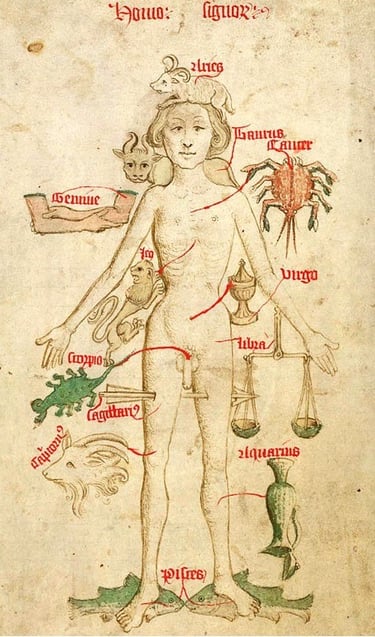 Homo: signorum
Aries
Taurus
Cancer
Gemine
leo
virgo
libra
Scorpio
Sagittari9
Capricorn9
Aquarius
Pisces